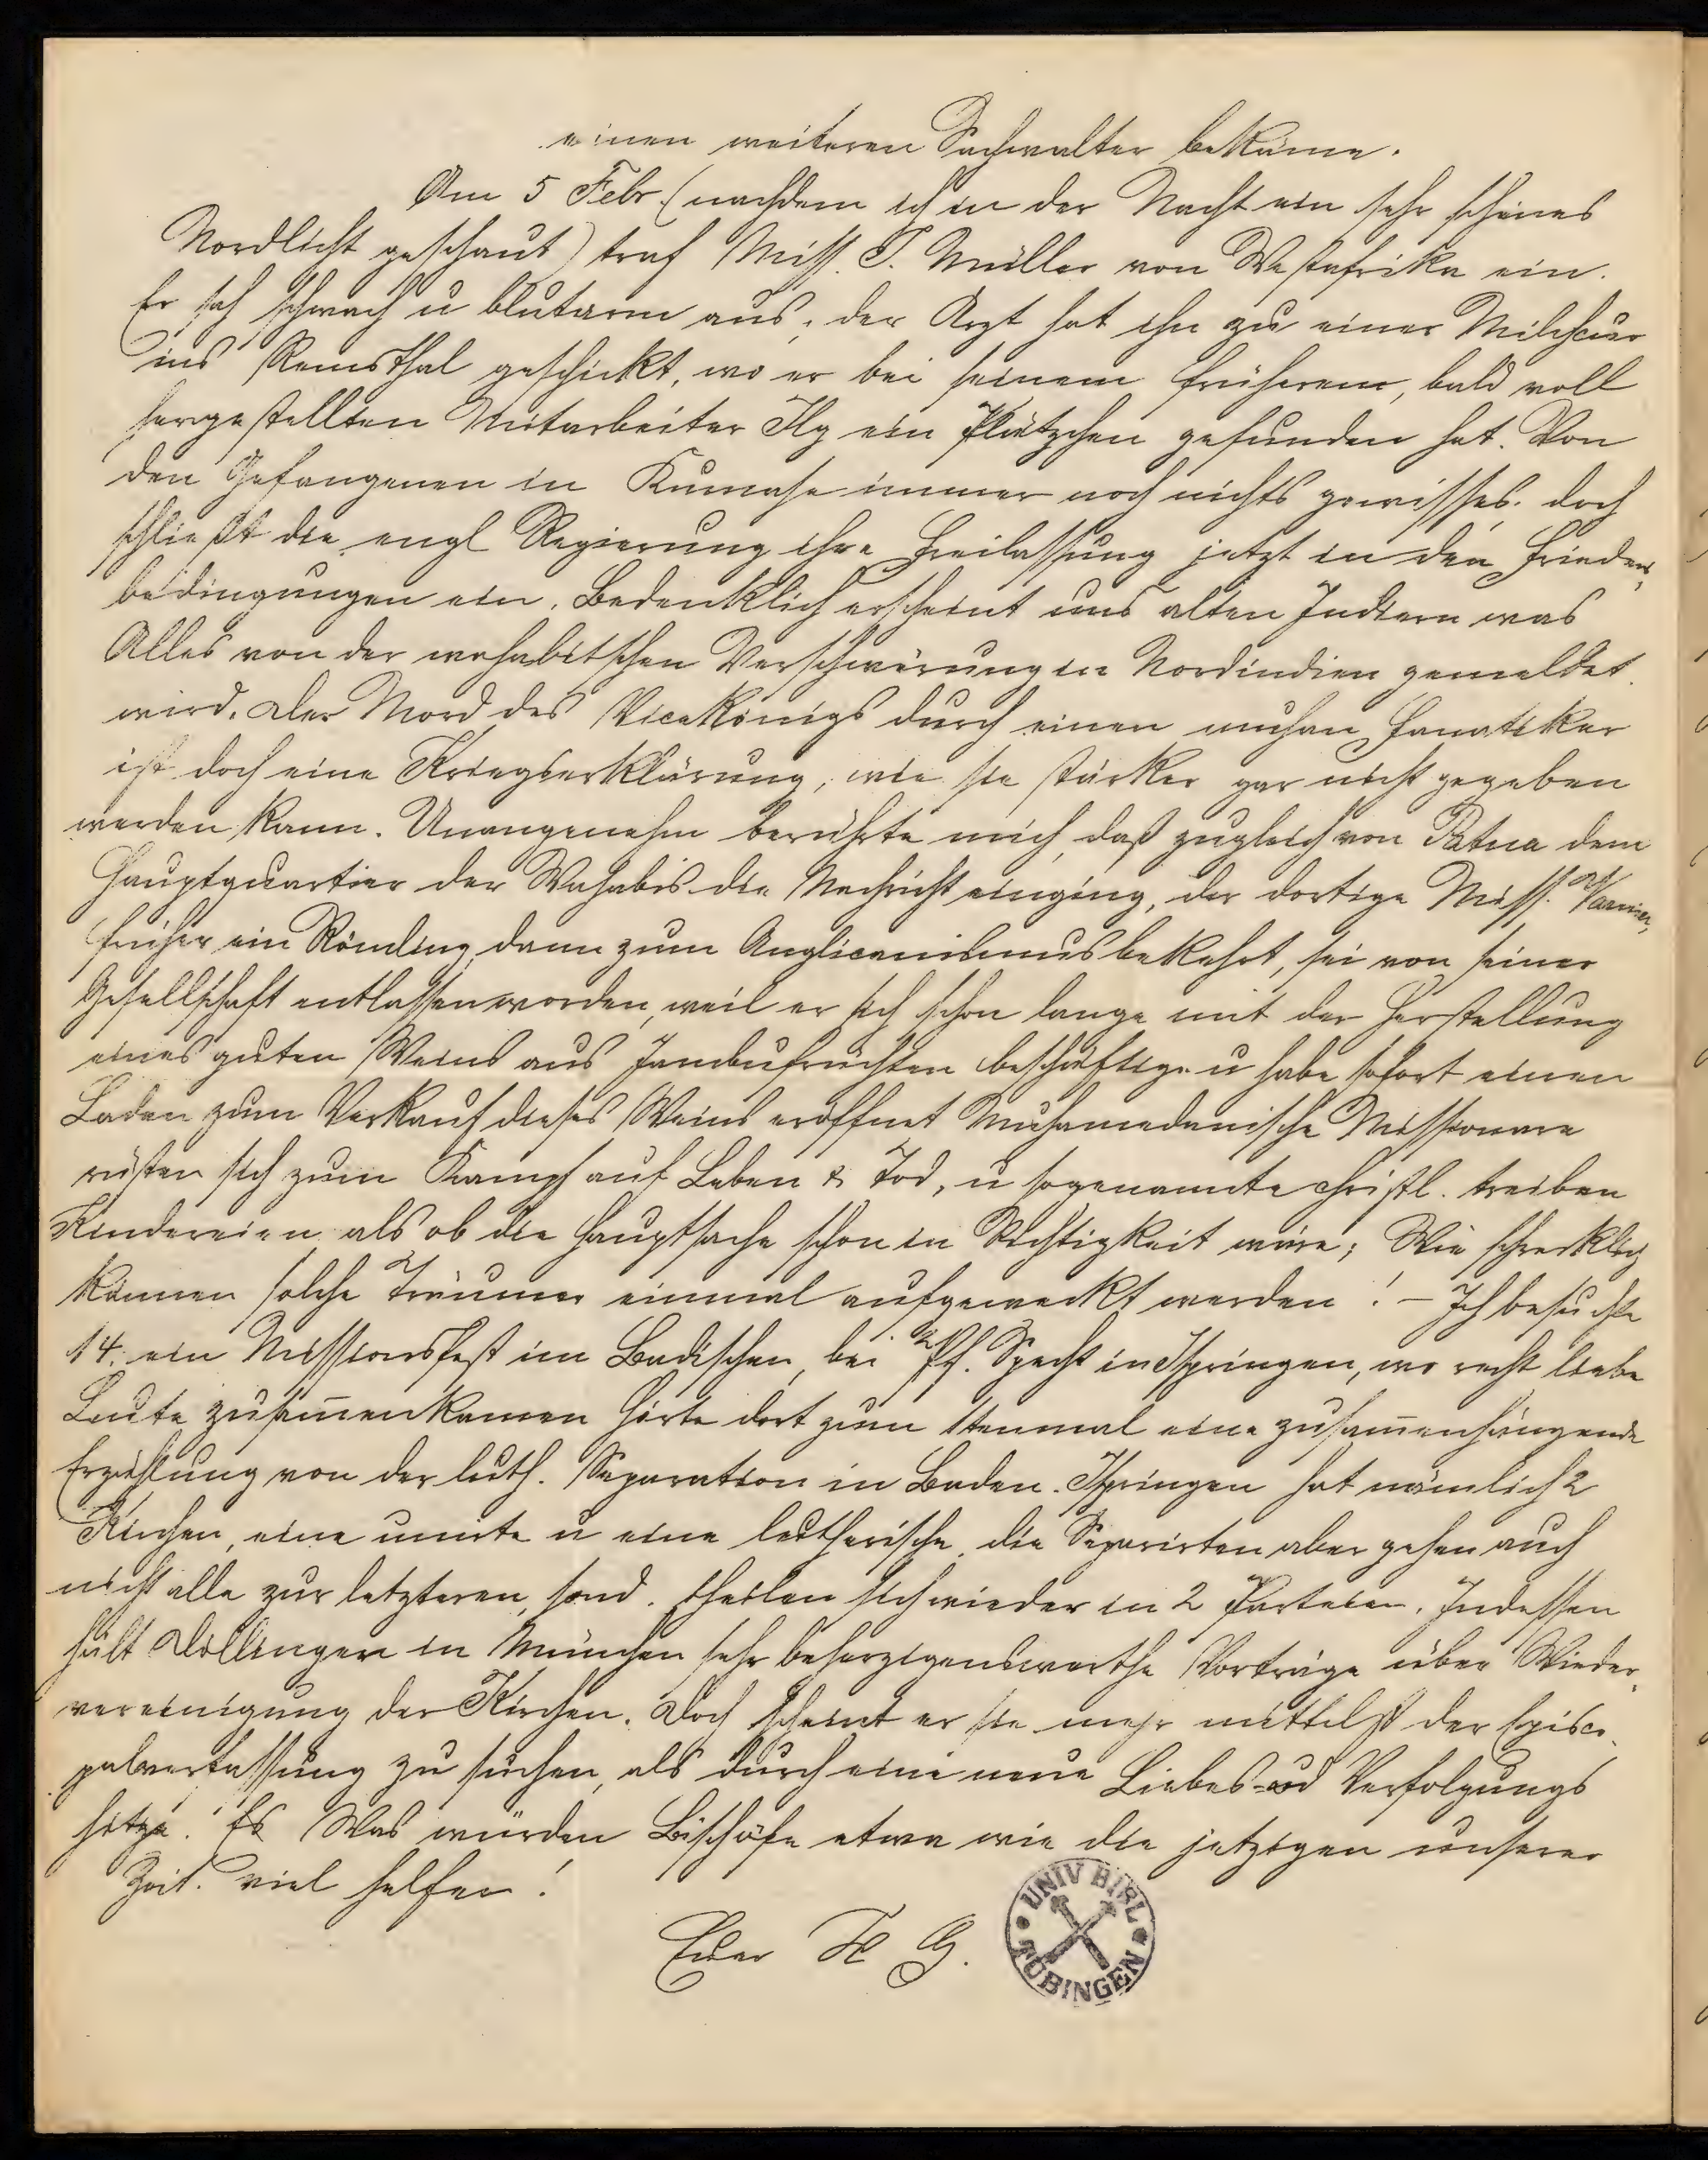 einen weiteren Sachwalter bekäme.
Am 5 Febr. (nachdem ich in der Nacht ein sehr schönes
Nordlicht geschaut) traf Miss. J. Müller von Westafrika ein.
Er sah schwach u blutarm aus, der Arzt hat ihn zu einer Milchcur
ins Remsthal geschickt, wo er bei seinem früheren, bald voll
hergestellten Mitarbeiter Ilg ein Plätzchen gefunden hat. Von
den Gefangenen in Kumase immer noch nichts gewisses. doch
schließt die engl Regierung ihre Freilassung jetzt in den Friedens-
bedingungen ein. Bedenklich erscheint uns alten Indiern was
Alles von der wahabitschen Verschwörung in Nordindien gemeldet
wird. Der Mord des Vicekönigs durch einen muham Fanatiker
ist doch eine Kriegserklärung, wie sie stärker gar nicht gegeben
werden kann. Unangenehm berührte mich, daß zugleich von Patna dem
Hauptquartier der Wahabis die Nachricht einging, der dortige Miss.
früher ein Römling, dann zum Anglicanismus bekehrt, sei von seiner
Gesellschaft entlassen worden, weil er sich schon lange mit der Herstellung
eines guten Weins aus Jambufrüchten beschäftige u habe sofort einen
Laden zum Verkauf dieses Weins eröffnet Muhamedanische Missionare
rüsten sich zum Kampf auf Leben & Tod, u sogenannte christl. treiben
Kindereien als ob die Hauptsache schon in Richtigkeit wäre; Wie schrecklich
können solche Träumer einmal aufgeweckt werden! - Ich besuchte
14. ein Missionsfest im Badischen, bei Pf. Specht in Ispringen, wo recht liebe
Leute zusam̄enkamen hörte dort zum 1tenmal eine zusam̄enhängende
Erzählung von der luth. Separation in Baden. Ispringen hat nämlich 2
Kirchen, eine unirte u eine lutherische, die Separirten aber gehen auch
nicht alle zur letzteren, sond. theilen sich wieder in 2 Parteien. Indessen
hält Döllinger in München sehr beherzigenswerthe Vorträge über Wieder-
vereinigung der Kirchen. Doch scheint er sie mehr mittelst der Episco-
palverfassung zu suchen, als durch eine neue Liebes- und Verfolgungs
hitze. Es Was würden Bischöfe etwa wie die jetzigen unserer
Zeit. viel helfen!
Euer H G.
UNIV BIBL TÜBINGEN